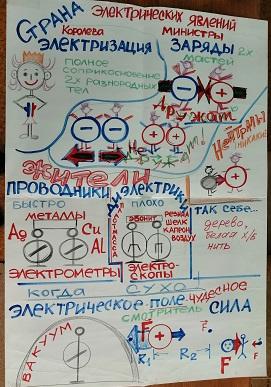 СТРАНА ЭЛЕКТРИЧЕСКИХ ЯВЛЕНИЙ
Королева
ЭЛЕКТРИЗАЦИЯ
ПОЛНОЕ
СОПРИКОСНОВЕНИЕ
2х РАЗНОРОДНЫХ
ТЕЛ
МИНИСТРЫ
ЗАРЯДЫ 2х
МАСТЕЙ
Дружат
Нейтралы
никакие
ЖИТЕЛИ
ПРОВОДНИКИ
БЫСТРО
МЕТАЛЛЫ
Ag
Cu
Al
ЭЛЕКТРОМЕТРЫ
ДИЭЛЕКТРИКИ
ПЛОХО
ПЛАСТМАССА
ЭБОНИТ
РЕЗИНА
ШЕЛК
КАПРОН
ВОЗДУХ
ЭЛЕКТРО-
СКОПЫ
ТАК СЕБЕ...
дерево,
белая х/б
нить
КОГДА СУХО
ЭЛЕКТРИЧЕСКОЕ ПОЛЕ-ЧУДЕСНОЕ
СМОТРИТЕЛЬ
СИЛА
ВАКУУМ
F
F
R1
R2
F
F